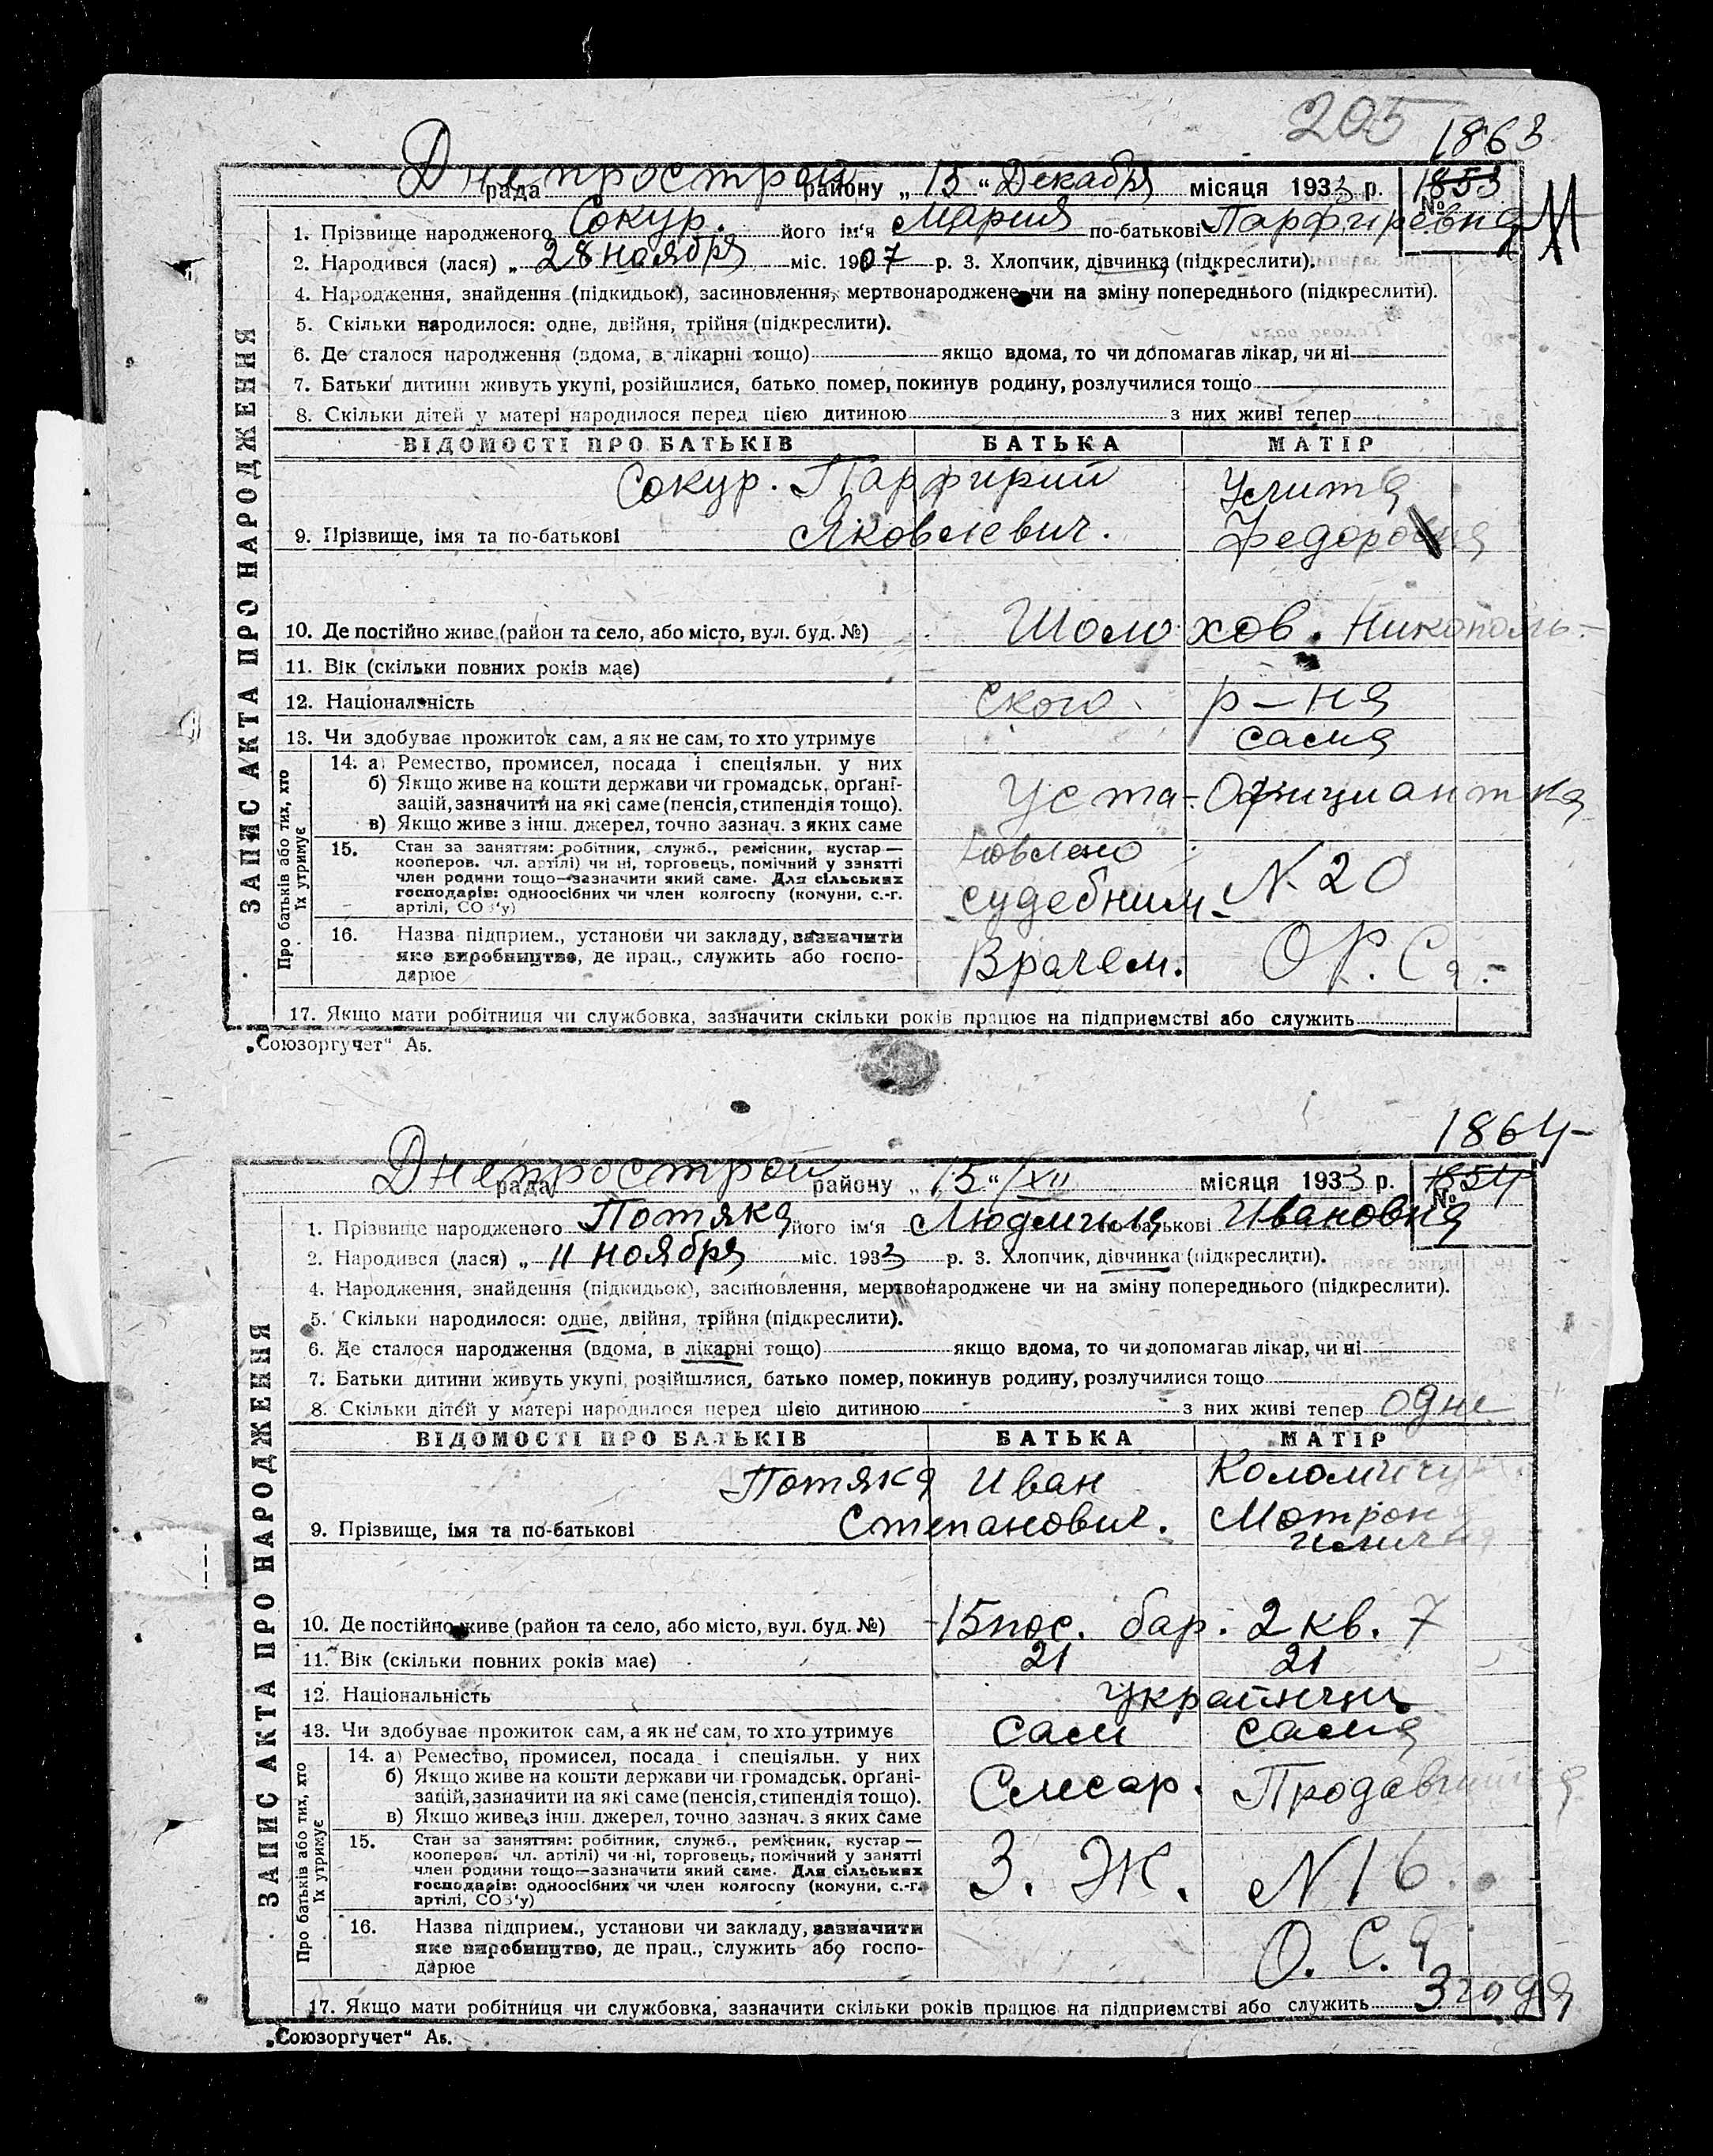 205
1863
Днепрострой
рада району „ 15 “ Декабря місяця 1933 р. № 1853
1. Прізвище народженого Сокур. його ім'я Мария по-батькові Парфиревна
2. Народився (лася) „ 28 ноября міс. 1907 р. 3. Хлопчик, дівчинка (підкреслити).
4. Народження, знайдення (підкидьок), засиновлення, мертвонароджене чи на зміну попереднього (підкреслити).
5. Скільки народилося: одне, двійня, трійня (підкреслити).
6. Де сталося народження (вдома, в лікарні тощо) якщо вдома, то чи допомагав лікар, чи ні
7. Батьки дитини живуть укупі, розійшлися, батько помер, покинув родину, розлучилися тощо
8. Скільки дітей у матері народилося перед цією дитиною з них живі тепер
ЗАПИС АКТА ПРО НАРОДЖЕННЯ
ВІДОМОСТІ ПРО БАТЬКІВ БАТЬКА МАТІР
Сокур. Парфирий Улита
9. Прізвище, імя та по-батькові Яковлевич. Федоровна
10. Де постійно живе (район та село, або місто, вул. буд. №) Шолохов. Никополь-
11. Вік (скільки повних років має)
12. Національність ского р-на
13. Чи здобуває прожиток сам, а як не сам, то хто утримує сама
Про батьків або тих, хто їх утримує
14. а) Ремество, промисел, посада і спеціяльн. у них
б) Якщо живе на кошти держави чи громадськ. орґані-
зацій, зазначити на які саме (пенсія, стипендія тощо). Уста- Официантка
в) Якщо живе з інш. джерел, точно зазнач. з яких саме
15. Стан за заняттям: робітник, служб., ремісник, кустар—
кооперов. чл. артілі) чи ні, торговець, помічний у занятті
член родини тощо—зазначити який саме. Для сільських
господарів: одноосібних чи член колгоспу (комуни, с.-г.
артілі, СОЗ'у)
новлено
судебним- N. 20
16. Назва підприєм., установи чи закладу, зазначити
яке виробництво, де прац., служить або госпо-
дарює
Врачем.
17. Якщо мати робітниця чи службовка, зазначити скільки років працює на підприємстві або служить
„Союзоргучет“ Аб.
1864
Днепрострой
рада району „ 15 “ XII місяця 1933 р. № 1854
1. Прізвище народженого Потяка його ім'я Людмила по-батькові Ивановна
2. Народився (лася) „ 11 ноября міс. 1933 р. 3. Хлопчик, дівчинка (підкреслити).
4. Народження, знайдення (підкидьок), засиновлення, мертвонароджене чи на зміну попереднього (підкреслити).
5. Скільки народилося: одне, двійня, трійня (підкреслити).
6. Де сталося народження (вдома, в лікарні тощо) якщо вдома, то чи допомагав лікар, чи ні
7. Батьки дитини живуть укупі, розійшлися, батько помер, покинув родину, розлучилися тощо
8. Скільки дітей у матері народилося перед цією дитиною з них живі тепер одне
ЗАПИС АКТА ПРО НАРОДЖЕННЯ
ВІДОМОСТІ ПРО БАТЬКІВ БАТЬКА МАТІР
Потяка Иван
9. Прізвище, імя та по-батькові Степанович. Мотрона
10. Де постійно живе (район та село, або місто, вул. буд. №) 15 пос. бар. 2 кв. 7
11. Вік (скільки повних років має) 21 21
12. Національність українци
13. Чи здобуває прожиток сам, а як не сам, то хто утримує сам сама
Про батьків або тих, хто їх утримує
14. а) Ремество, промисел, посада і спеціяльн. у них
б) Якщо живе на кошти держави чи громадськ. орґані-
зацій, зазначити на які саме (пенсія, стипендія тощо). Слесар. Продавщица
в) Якщо живе з інш. джерел, точно зазнач. з яких саме
15. Стан за заняттям: робітник, служб., ремісник, кустар—
кооперов. чл. артілі) чи ні, торговець, помічний у занятті
член родини тощо—зазначити який саме. Для сільських
господарів: одноосібних чи член колгоспу (комуни, с.-г.
артілі, СОЗ'у)
З. Ж. N 16
16. Назва підприєм., установи чи закладу, зазначити
яке виробництво, де прац., служить або госпо-
дарює
17. Якщо мати робітниця чи службовка, зазначити скільки років працює на підприємстві або служить 3 года
„Союзоргучет“ Аб.